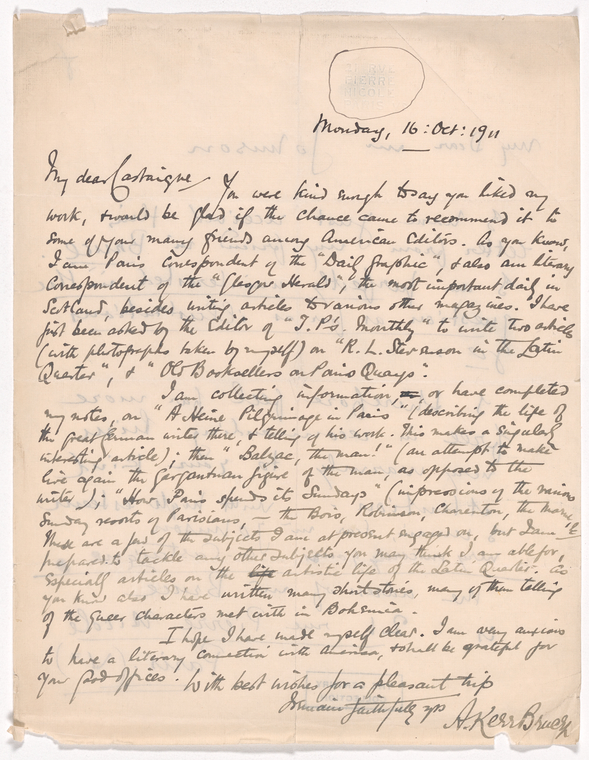 Monday, 16: Oct: 1911
My dear Castaigne — You were kind enough to say you liked my
work, & would be glad if the chance came to recommend it to
some of your many friends among American Editors. As you know,
I am Paris correspondent of the "Daily Graphic", & also am literary
correspondent of the "Glasgow Herald", the most important daily in
Scotland, besides writing articles to various other magazines. I have
just been asked by the Editor of "T.P's. Monthly" to write two articles
(with photographs taken by myself) on "R. L. Stevenson in the Latin
Quarter", & "Old Booksellers on Paris Quays".
I am collecting information, or have completed
my notes, on "A Heine Pilgrimage in Paris" (describing the life of
this great German writer there, & telling of his work. This makes a singularly
interesting article); then "Balzac, the man!" (an attempt to make
live again the Gargantuan figure of the man, as opposed to the
writer); "How Paris spends its Sundays" (impressions of the various
Sunday resorts of Parisians, — the Bois, Robinson, Charenton, the Marne
These are a few of the subjects I am at present engaged on, but I am
prepared to tackle any other subjects you may think I am able for,
especially articles on the life artistic life of the Latin Quarter. As
you know also I have written many short stories, many of them telling
of the queer characters met with in Bohemia.
I hope I have made myself clear. I am very anxious
to have a literary connection with America, & shall be grateful for
your good offices. With best wishes for a pleasant trip
I remain faithfully yrs
A. Kerr Bruce